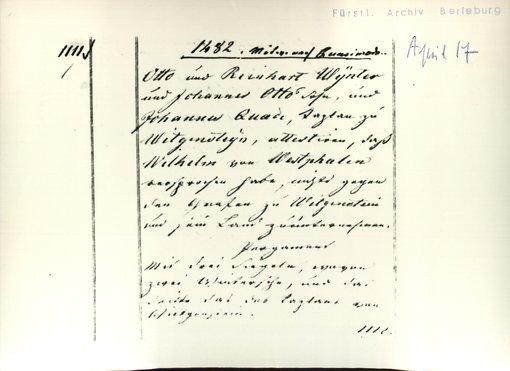 Fürstl. Archiv Berleburg
1482. Mitw. nach Quasimodo.
April 17
Otto und Reinhart Wÿnter
und Johannes Otto's Sohn, und
Johannes Quade, Caplan zu
Witgensteyn, attestiren, daß
Wilhelm von Westphalen
versprochen habe, nichts gegen
den Grafen zu Witgenstein
und sein Land zu unternehmen.
Pergament
Mit drei Siegeln, wovon
zwei Wintersche, und das
dritte das des Caplans von
Witgenstein.